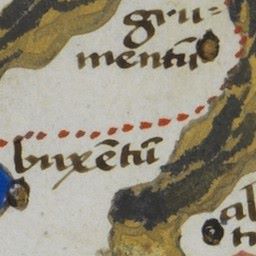 gru-
mentū
buxētū
al